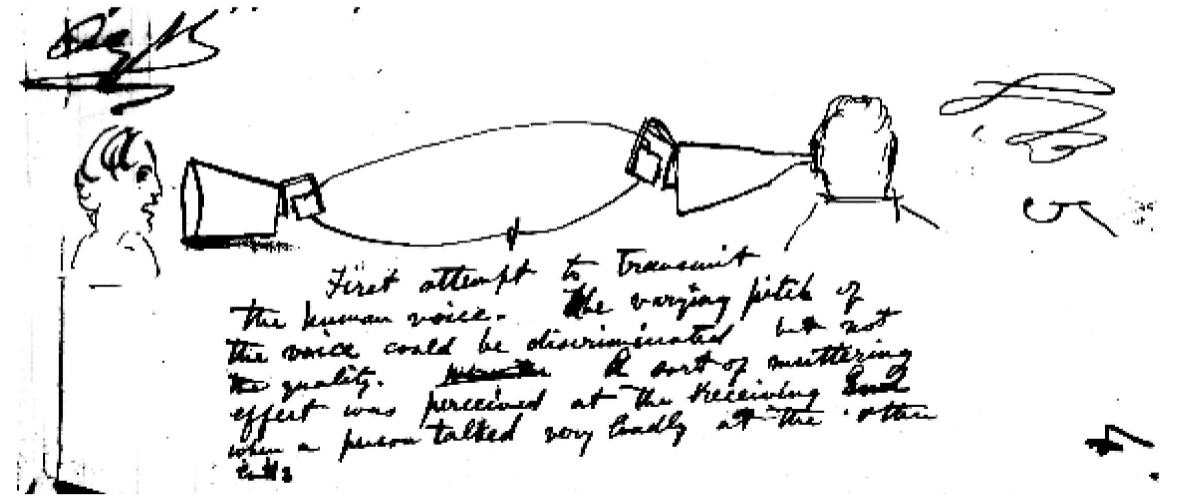 Fig 5
First attempt to transmit
the human voice. The varying pitch of
the voice could be discriminated but not
the quality. A sort of muttering
effect was perceived at the receiving End
when a person talked very loudly at the other